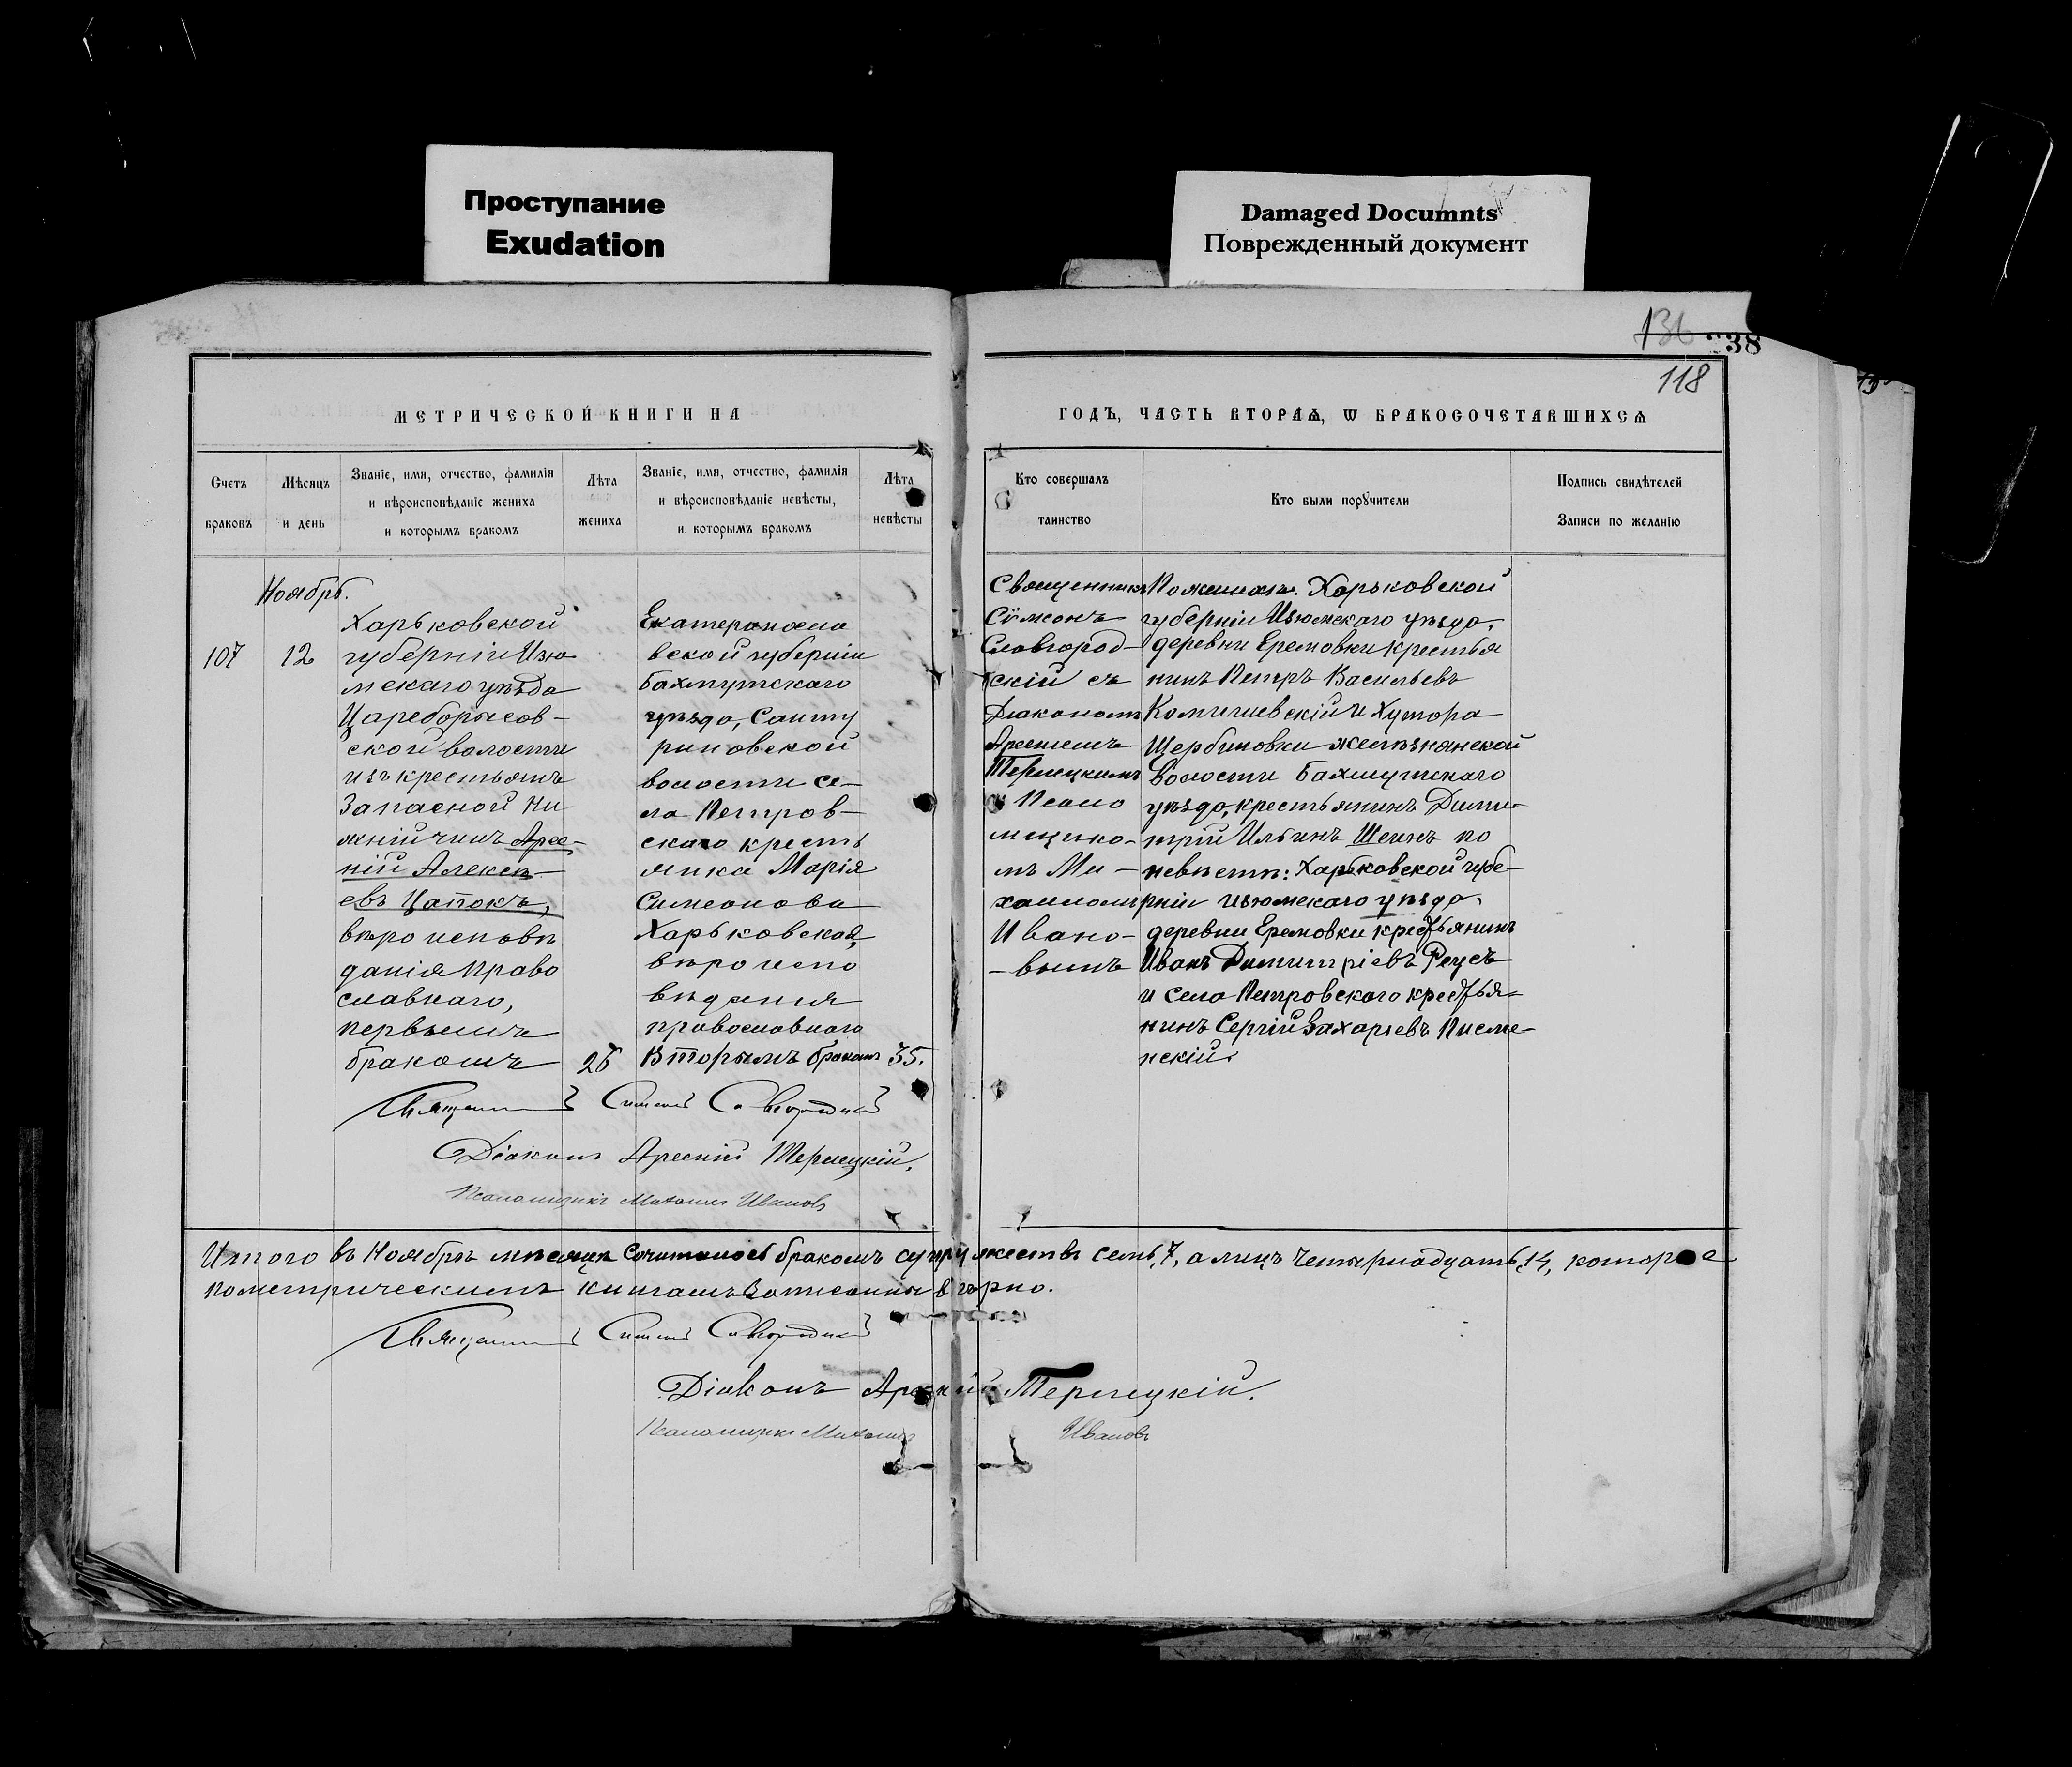 Проступание
Exudation
Damaged Documnts
Поврежденный документ
136
38
118
МЕТРИЧЕСКОЙ КНИГИ НА
ГОДЪ, ЧАСТЬ ВТОРАѦ, Ѡ БРАКОСОЧЕТАВШИХСѦ
Счетъ
браковъ
Мѣсяцъ
и день
Званіе, имя, отчество, фамилія
и вѣроисповѣданіе жениха
и которымъ бракомъ
Лѣта
жениха
Званіе, имя, отчество, фамилія
и вѣроисповѣданіе невѣсты,
и которымъ бракомъ
Лѣта
невѣсты
Кто совершалъ
таинство
Кто были поручители
Подпись свидѣтелей
Записи по желанію
Ноябрь.
107
12
Харьковской
губерніи Изю
мскаго уѣзда
Цареборисов-
ской волости
изъ крестьянъ
Запасной ни
жній чинъ Арсе-
ній Алексѣ-
евъ Цапокъ,
вѣроисповѣ
данія право
славнаго,
первымъ
бракомъ
26
Екатериносла
вской губерніи
Бахмутскаго
уѣзда, Санту
риновской
волости се-
ла Петров-
скаго кресть
янка Марія
Симеонова
Харьковская,
вѣроиспо
вѣданія
православнаго
Вторымъ бракомъ
35.
Священникъ
Сѵмеонъ
Славгород-
скій съ
Діакономъ
Арсеніемъ
Терлецкимъ
и Псало
мщико-
мъ Ми-
хаиломъ
Ивано-
-вымъ
По женихѣ: Харьковской
губерніи Изюмскаго уѣзда,
деревни Еремовки крестья
нинъ Петръ Васильевъ
Комичевскій и Хутора
Щербиновки Желѣзнянской
волости Бахмутскаго
уѣзда, крестьянинъ Дими-
трій Ильинъ Шеинъ по
невѣстѣ: Харьковской губе-
рніи Изюмскаго уѣзда
деревни Еремовки крестьянинъ
Иванъ Димитріевъ Реусъ
и села Петровскаго крестья-
нинъ Сергій Захаріевъ Письме-
нскій.
Священникъ Симеонъ Славгородскій
Діаконъ Арсеній Терлецкій.
Псаломщикъ Михаилъ Ивановъ
Итого въ Ноябрѣ мѣсяцѣ Сочиталось бракомъ супружествъ семь, 7, а лицъ четырнадцать, 14, которые
по метрическимъ книгамъ записаны вѣрно.
Священникъ Симеонъ Славгородскій
Діаконъ Арсеній Терлецкій.
Псаломщикъ Михаилъ Ивановъ